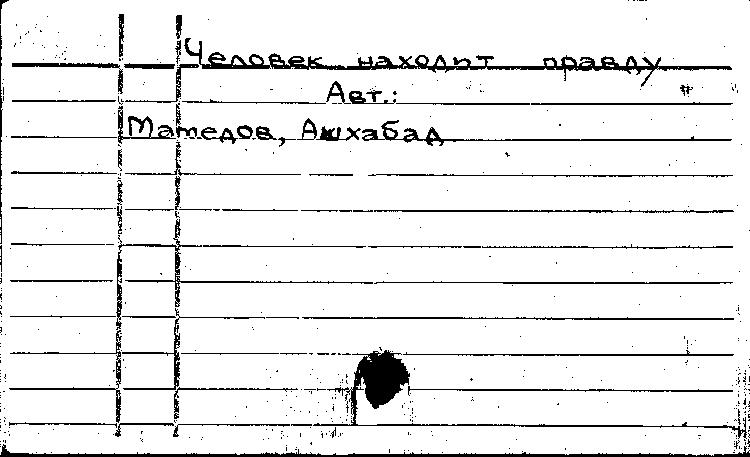 Человек находит правду
Авт.:
Мамедов, Ашхабад